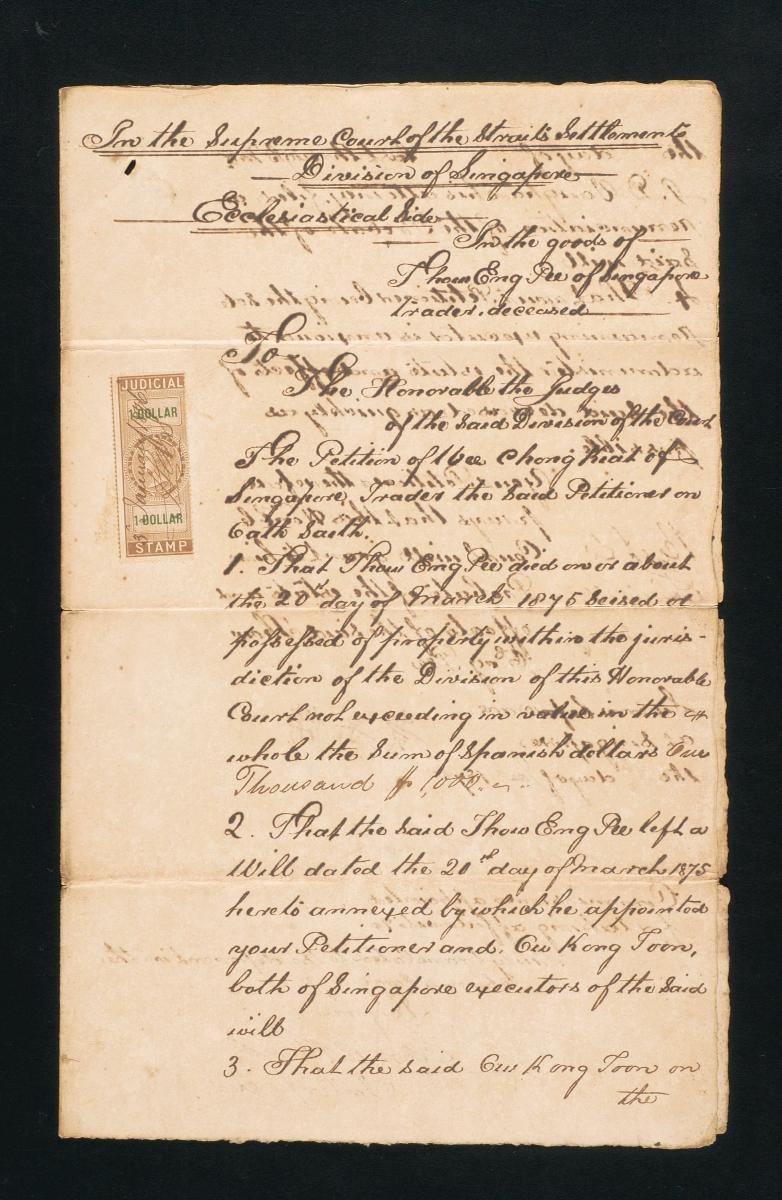 In the Supreme Court of the Straits Settlements
Division of Singapore
Ecclesiastical Side
In the goods of
Thow Eng Pee of Singapore
trader, deceased
To
The Honorable the Judges
of the said Division of the Court
The Petition of Wee Chong Keat of
Singapore, Trader the said Petitioner on
Oath Saith.
1. That Thow Eng Pee died on or about
the 20th day of March 1875 seised or
possessed of property within the juris-
diction of the Division of this Honorable
Court not exceeding in value in the
whole the Sum of Spanish dollars One
Thousand $1,000.
2. That the said Thow Eng Pee left a
Will dated the 20th day of March 1875
hereto annexed by which he appointed
your Petitioner and Ow Kong Toon,
both of Singapore executors of the said
will
3. That the said Ow Kong Toon on
the
JUDICIAL
1 DOLLAR
1 DOLLAR
STAMP